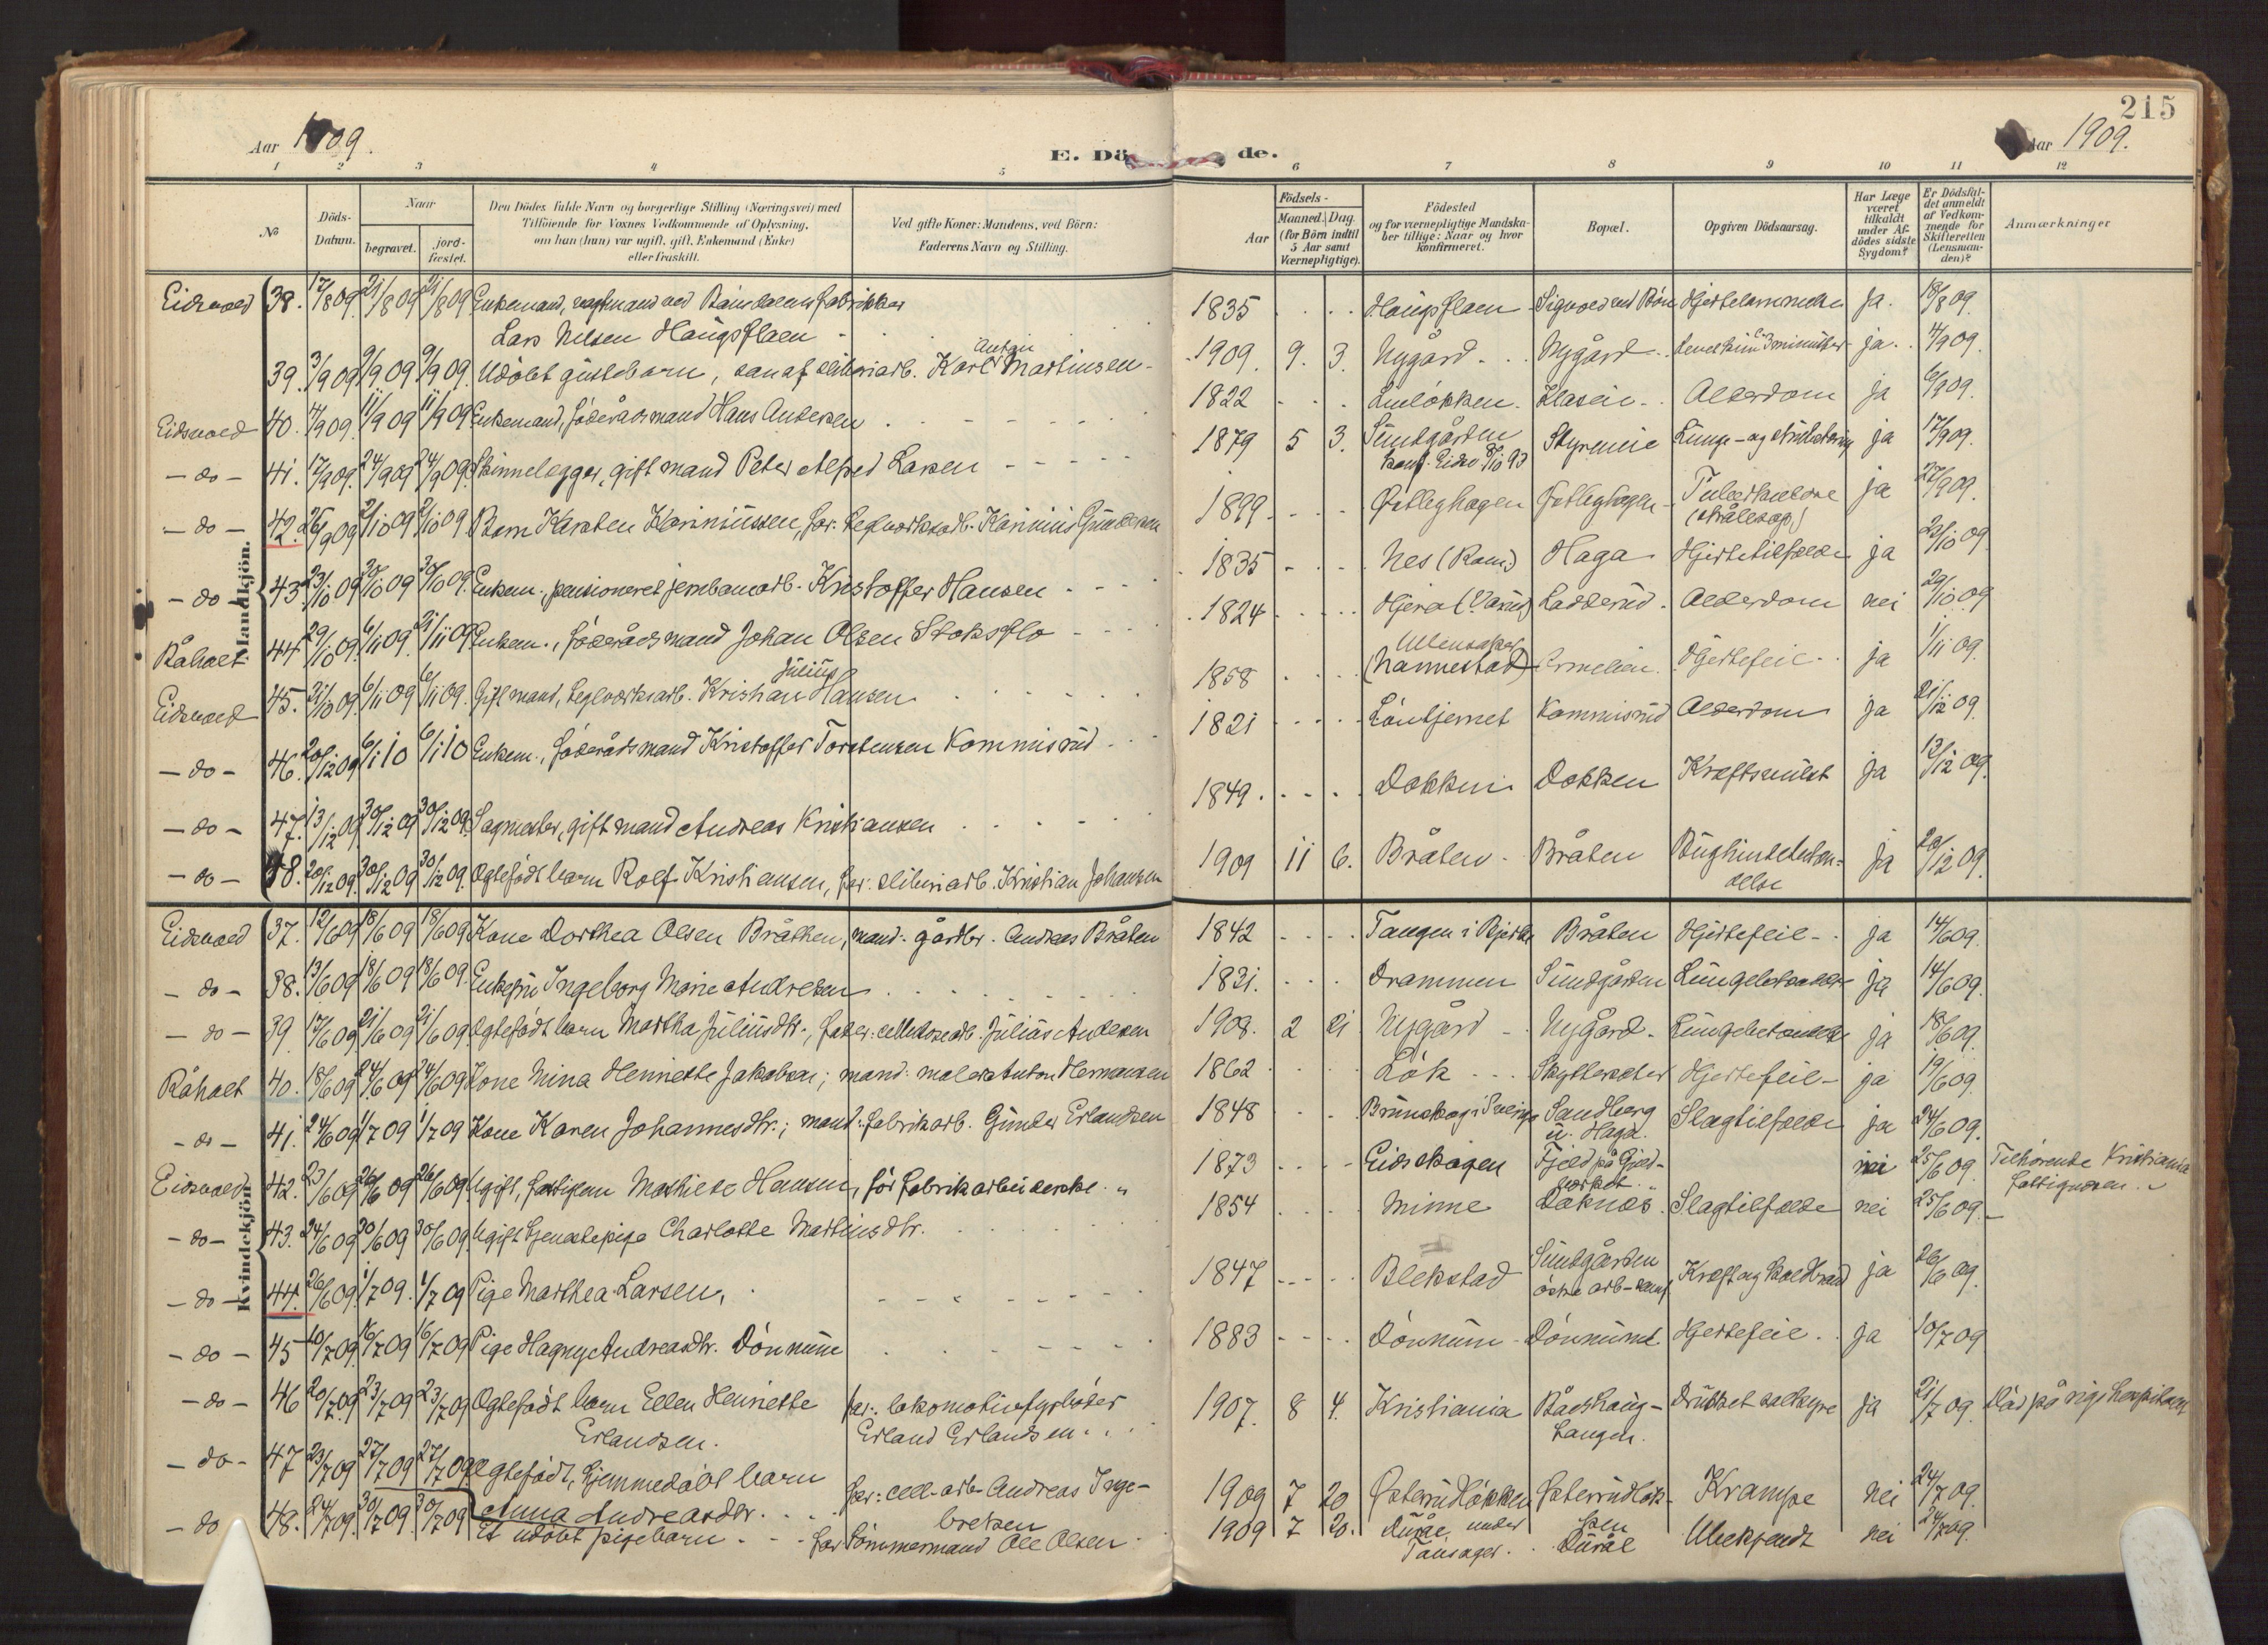 215
Aar 1909.
E. Dö de.
Aar 1909.
1 2 3 4 5 6 7 8 9 10 11 12
No
Döds-Datum.
Naar
begravet.
jord-fæstet.
Den Dödes fulde Navn og borgerlige Stilling (Næringsvei) med Tilföiende for Voxnes Vedkommende af Oplysning, om han (hun) var ugift, gift, Enkemand (Enke) eller fraskilt.
Ved gifte Koner: Mandens, ved Börn: Faderens Navn og Stilling.
Födsels-
Aar
Maaned. Dag. (for Börn indtil 5 Aar samt Værnepligtige).
Födested og for værnepligtige Mandskaber tillige: Naar og hvor konfirmeret.
Bopæl.
Opgiven Dödsaarsag.
Har Læge været tilkaldt under Afdödes sidste Sygdom?
Er Dödsfaldet anmeldt af Vedkommende for Skifteretten (Lensmanden)?
Anmærkninger
Mandkjön.
Eidsvold 38. 17/8 09. 21/8 09 21/8 09 Enkemand, vagtmand ved fabrikker 1835 Haugsflaen Hjertelammelse ja. 18/8 09.
Lars Nilsen Haugsflaen
39. 3/9 09 9/9 09 9/9 09. Udöbt guttebarn, sön af sliberiarb. Karl Anton Martinsen 1909. 9. 3. Nygård Nygård Levet kun 3 minutter ja. 4/9 09.
Eidsvold 40. 4/9 09. 11/9 09 11/9 09 Enkemand, föderådsmand Hans Andersen 1822 Linlökken Alderdom ja 6/9 09.
- do - 41. 17/9 09. 24/9 09 24/9 09. Skinnelegger, gift mand Peter Alfred Larsen 1879 5 3. Sundgården Styrmine Lunge- og ja 17/9 09.
konf. Eidsv. 8/10 93
- do - 42. 26/9 09 2/10 09 2/10 09 Barn Karsten Kariniussen, far: Teglverksarb. Karinius Gundersen 1899. Østleghagen Østleghagen Tuberkulose ja 27/9 09.
- do - 43. 23/10 09 30/10 09 30/10 09. Enkem., pensioneret jernbanearb. Kristoffer Hansen 1835 Nes (Rom.) Haga Hjertetilfælde ja 23/10 09.
Råholt 44. 29/10 09. 6/11 09. 6/11 09 Enkem., föderådsmand Johan Olsen Stoksflo 1824 Ladderud. Alderdom nei 29/10 09
Eidsvold 45. 31/10 09. 6/11 09 6/11 09. Gift mand, teglverksarb. Kristian Julius Hansen 1858 Ullensaker (Nannestad) Hjertefeil ja 1/11 09.
- do - 46. 20/12 09 6/1 10 6/1 10 Enkem., föderådsmand Kristoffer Torstensen Kommisrud 1821 Löntjernet Kommisrud Alderdom ja 21/12 09.
- do - 47. 13/12 09. 30/12 09 30/12 09. Sagmester, gift mand Andreas Kristiansen 1849. Dokken Dokken Kræftsvulst ja 13/12 09.
- do - 48. 20/12 09. 30/12 09 30/12 09. Ægtefödt barn Rolf Kristiansen, far: sliberiarb. Kristian Johansen 1909 11 6. Bråten Bråten Bughindebetændelse ja 20/12 09.
Kvindekjön.
Eidsvold 37. 12/6 09 18/6 09 18/6 09 Kone Dorthea Olsen Bråthen, mand: gårdbr. Andreas Bråten 1842 Tangen i Bjerke Bråten Hjertefeil ja 14/6 09.
- do - 38. 13/6 09 18/6 09 18/6 09. Enkefru Ingeborg Marie Andresen 1831. Drammen Sundgården Lungebetændelse ja 14/6 09.
- do - 39. 17/6 09 21/6 09 21/6 09 Ægtefödt barn Martha Juliusdtr., fader: cellulosearb. Julius Andersen 1908. 2 21 Nygård Nygård. Lungebetændelse ja 18/6 09.
Råholt 40. 18/6 09 24/6 09 24/6 09 Kone Mina Henriette Jakobsen; mand: maler Anton Hermansen 1862 Lök Skyttersæter Hjertefeil ja 19/6 09
- do - 41. 24/6 09 1/7 09 1/7 09 Kone Karen Johannesdtr.; mand: fabrikarb. Gunder Erlandsen 1848 Brunskog i Sverige Sandberg u. Haga. Slagtilfælde ja 24/6 09.
Eidsvold 42. 23/6 09 26/6 09 26/6 09 Ugift, fattiglem Mathilde Hansen, för fabrikarbeiderske 1873 Eidsskogen nei 25/6 09. Tilhörende Kristiania
- do - 43. 24/6 09 30/6 09 30/6 09. Ugift tjenestepige Charlotte Martinsdtr. 1854 Minne Döknes. Slagtilfælde nei 25/6 09.
- do - 44. 26/6 09 1/7 09. 1/7 09 Pige Marthea Larsen. 1847 Blekstad Sundgården Kræft og Koldbrand ja 26/6 09.
- do - 45 10/7 09. 16/7 09 16/7 09 Pige Hagny Andreasdtr. Dönnum 1883 Dönnum Dönnum Hjertefeil. ja 10/7 09
- do - 46 20/7 09. 23/7 09 23/7 09 Ægtefödt barn Ellen Henriette far: lokomotivfyrböter 1907. 8 4. Kristiania Båeshaug- Drukket saltsyre ja 21/7 09. Död på rigshospitalet
Erlandsen. Erland Erlandsen. Langen.
- do - 47 23/7 09 27/7 09 27/7 09 Ægtefödt, hjemmedöbt barn far: cell-arb. Andreas Inge- 1909 7 20 Østerudlökken Østerudlök- Krampe nei 24/7 09.
Anna Andreasdtr. bretsen ken
- do 48. 24/7 09. 30/7 09 30/7 09 Et udöbt pigebarn far Tömmermand Ole Olsen 1909 7 20. Dúrål under Tausager. Dúrål Ubekjendt nei 24/7 09.